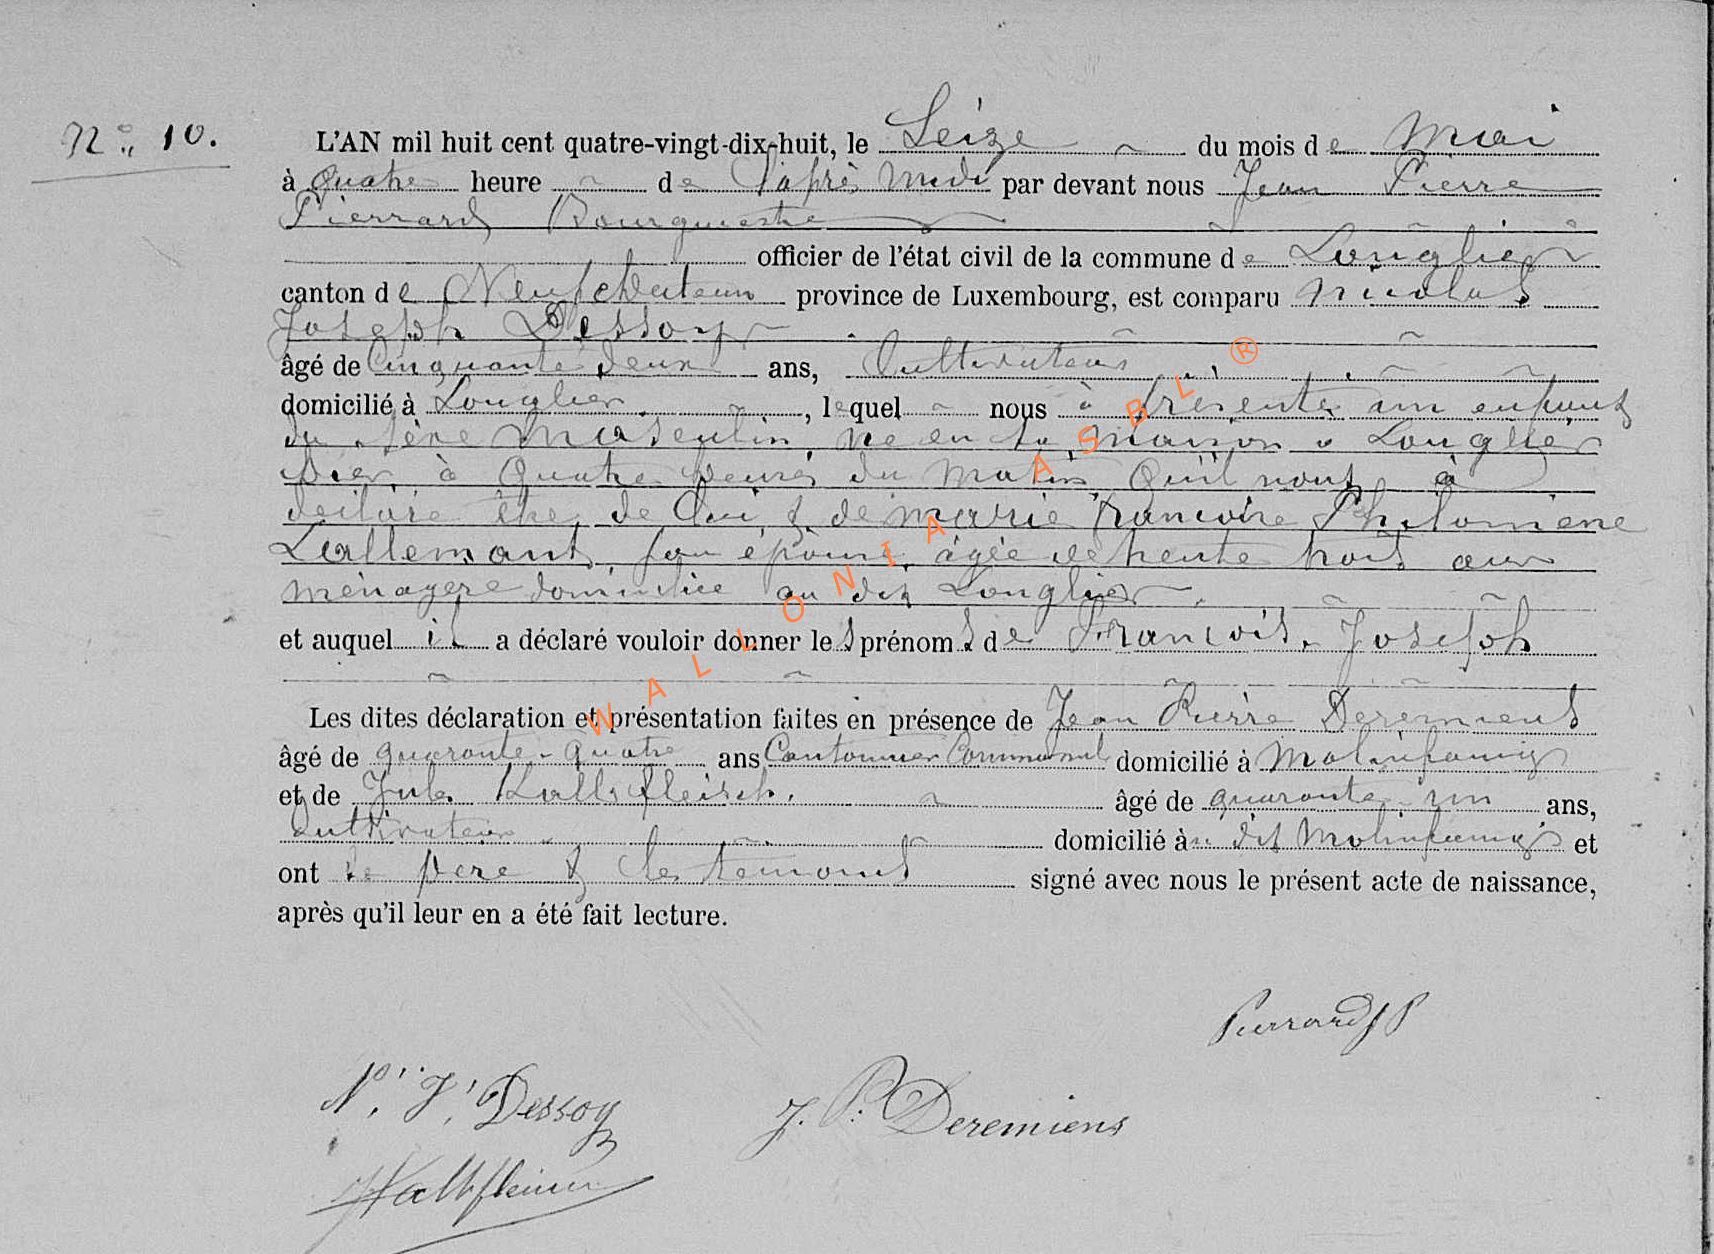 N° 10.
L'AN mil huit cent quatre-vingt-dix-huit, le Seize du mois de Mai
à quatre heure de l'après midi par devant nous Jean Pierre
Pierrard Bourgmestre
officier de l'état civil de la commune de Longlier
canton de Neufchateau province de Luxembourg, est comparu Nicolas
Joseph Dessoy
âgé de Cinquante deux ans, Cultivateur
domicilié à Longlier, lequel nous à présenté un enfant
du sexe masculin né en sa maison a Longlier
hier, à quatre heures du matin Qu'il nous à
déclaré être de Lui & de marie francoise Philomène
Lallemant, son épouse, âgée de trente trois ans
ménagère domiciliée au dit Longlier.
et auquel il a déclaré vouloir donner les prénoms de Francois. Joseph
Les dites déclaration et présentation faites en présence de Jean Pierre Deremiens
âgé de quarante-quatre ans Cantonnier Communal domicilié à Molinfaing
et de Jules Kalbfleisch. âgé de quarante un ans,
cultivateur domicilié au dit Molinfaing et
ont le père & les témoins signé avec nous le présent acte de naissance,
après qu'il leur en a été fait lecture.
Pierrard JP
N. J. Dessoy
J. P. Deremiens
WALLONIA ASBL ®